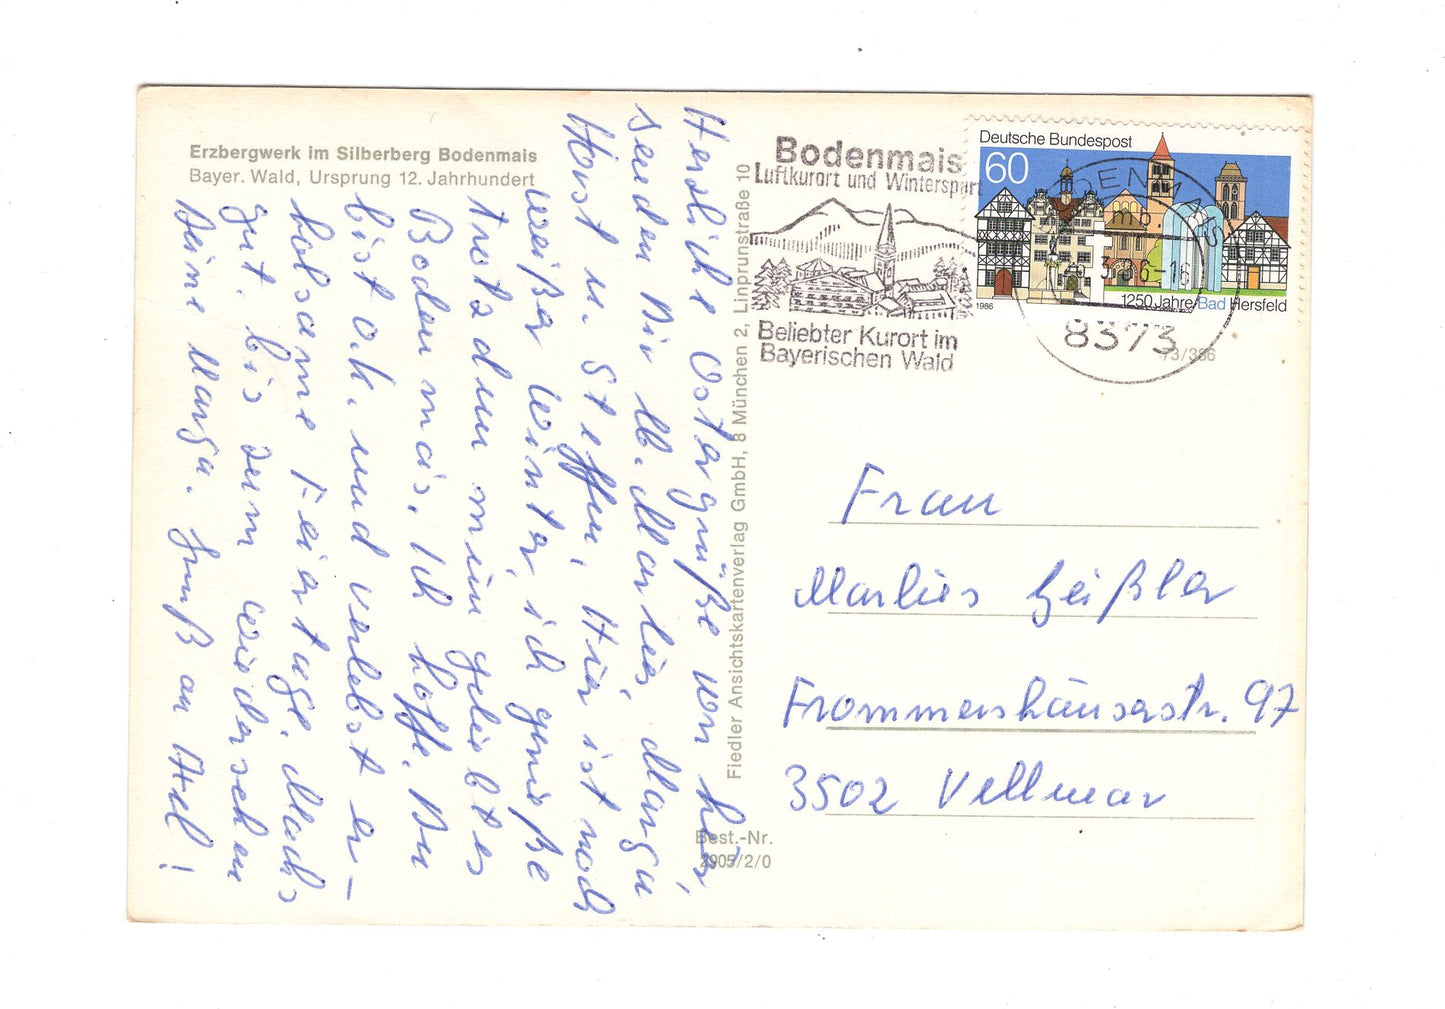 Erzbergwerk im Silberberg Bodenmais
Bayer. Wald, Ursprung 12. Jahrhundert
Herzliche Ostergrüße von hier,
senden Dir lb. Marlies, Marga
Horst u. Steffen, Hier ist noch
weißer Winter, ich genieße
trotzdem mein geliebtes
Bodenmais, Ich hoffe, Du
bist o.k. und verlebst er-
holsame Feiertage. Machs
gut. bis zum Wiedersehen
Deine Marga. Gruß an
Fiedler Ansichtskartenverlag GmbH, 8 München 2, Linprunstraße 10
Best.-Nr.
2905/2/0
Bodenmais
Luftkurort und Wintersport
Beliebter Kurort im
Bayerischen Wald
Deutsche Bundespost
60
1986
1250 Jahre Bad Hersfeld
BODENMAIS
8373
73/386
Frau
Marlies Geißler
Frommershäuserstr. 97
3502 Vellmar